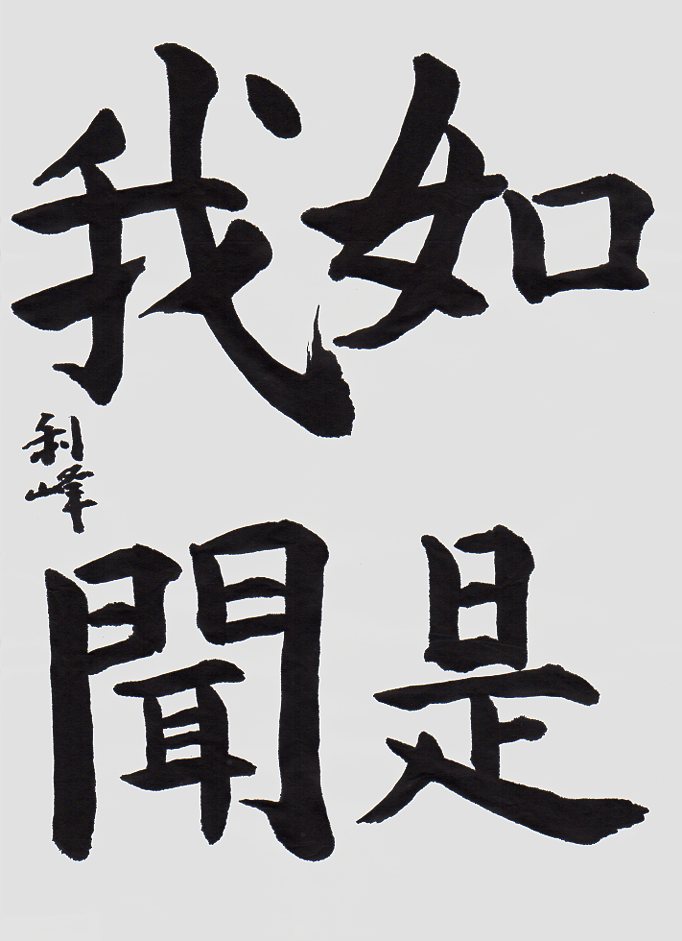 如是
我聞
利峰